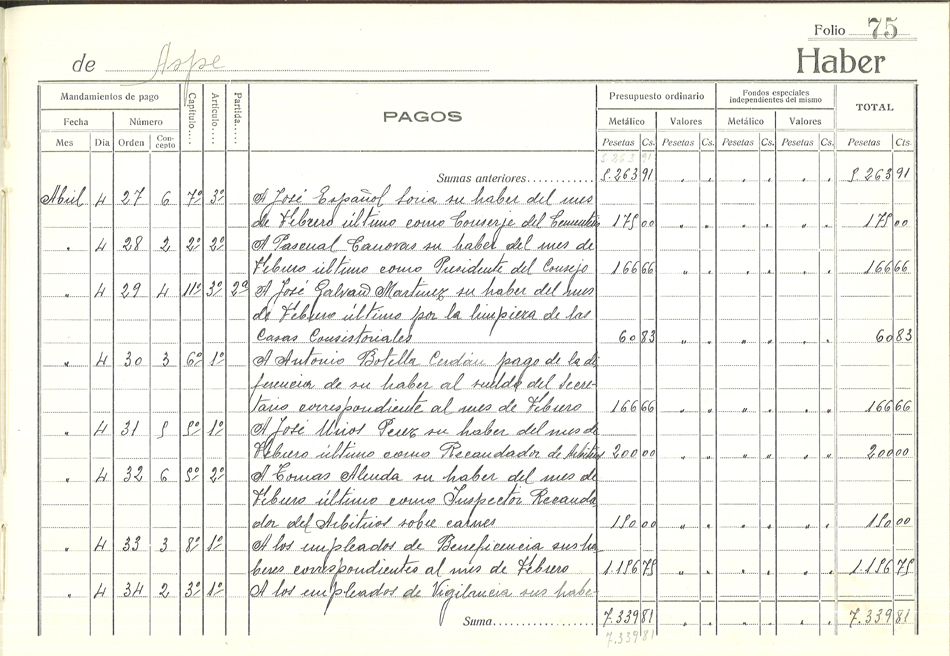 Folio 75
de Aspe Haber
Mandamientos de pago Capítulo.... Artículo.... Partida.... PAGOS Presupuesto ordinario Fondos especiales independientes del mismo TOTAL
Fecha Número Metálico Valores Metálico Valores
Mes Día Orden Concepto Pesetas Cs. Pesetas Cs. Pesetas Cs. Pesetas Cs. Pesetas Cts.
5.263 91
Sumas anteriores............ 5.263 91 " " " " " " 5.263 91
Abril 4 27 6 7º 3º A José Español Soria su haber del mes
de Febrero último como Conserje del Cementerio 175 00 " " " " " " 175 00
" 4 28 2 2º 2º A Pascual Canovas su haber del mes de
Febrero último como Presidente del Consejo 166 66 " " " " " " 166 66
" 4 29 4 11º 3º 2ª A José Galvañ Martinez su haber del mes
de Febrero último por la limpieza de las
Casas Consistoriales 60 83 " " " " " " 60 83
" 4 30 3 6º 1º A Antonio Botella Cerdán pago de la di
ferencia de su haber al sueldo del Secre-
tario correspondiente al mes de Febrero 166 66 " " " " " " 166 66
" 4 31 5 5º 1º A José Perez su haber del mes de
Febrero último como Recaudador de Arbitrios 200 00 " " " " " " 200 00
" 4 32 6 5º 2º A Tomas Alenda su haber del mes de
Febrero último como Inspector Recauda
dor del Arbitrios sobre carnes 150 00 " " " " " " 150 00
" 4 33 3 8º 1º A los empleados de Beneficencia sus ha
beres correspondientes al mes de Febrero 1.156 75 " " " " " " 1.156 75
" 4 34 2 3º 1º A los empleados de Vigilancia sus habe-
Suma...................... 7.339 81 " " " " " " 7.339 81
7.339 81